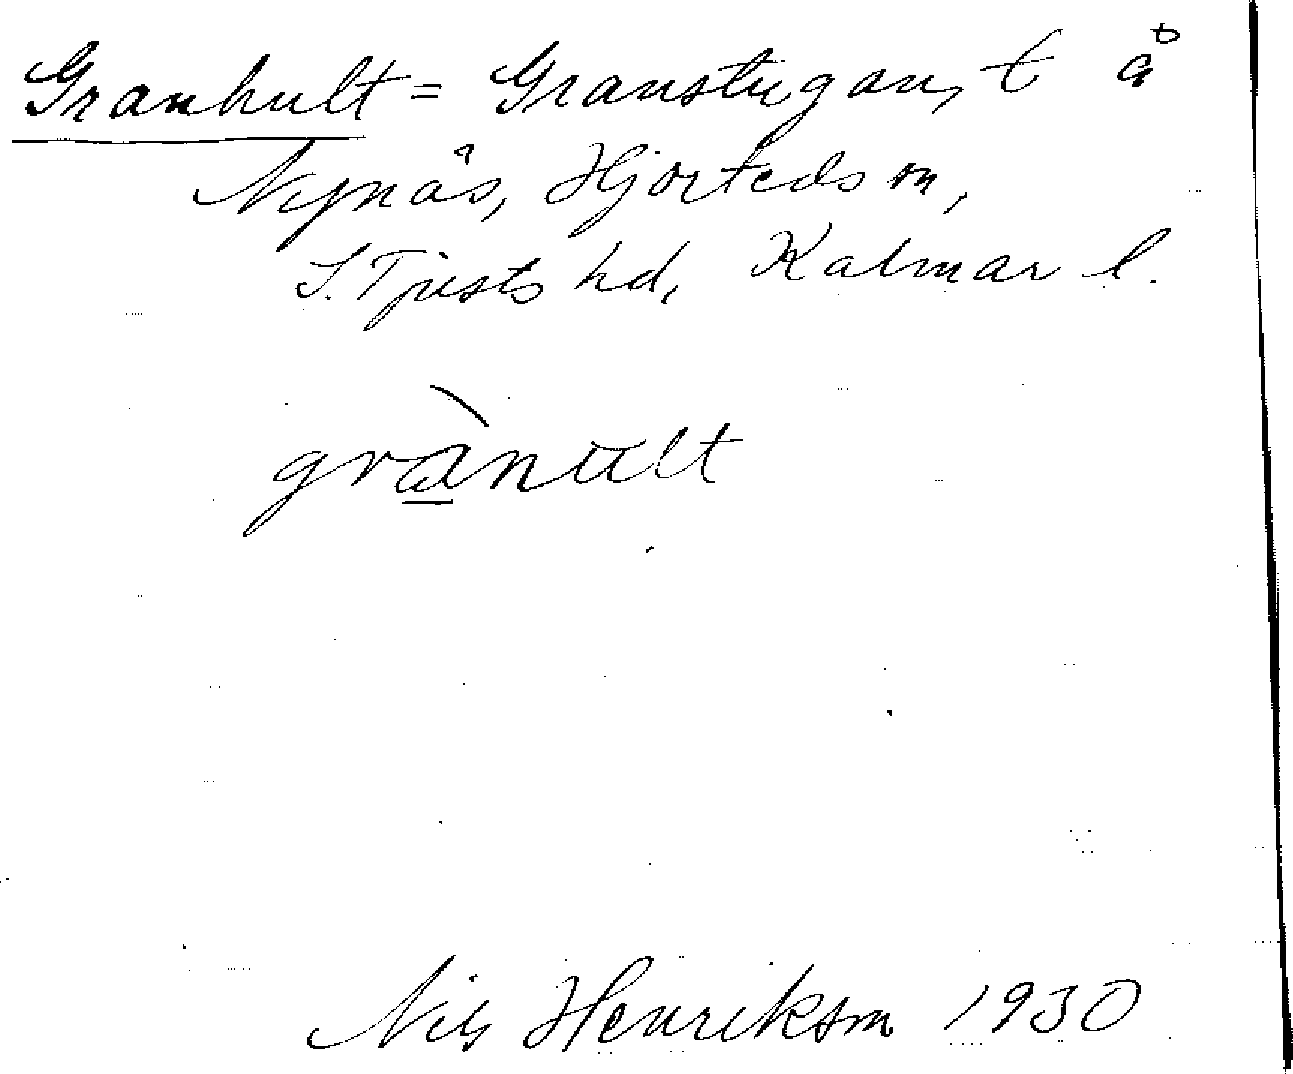 Granhult = Granstugan, t å
Nynäs, Hjorteds sn,
S. Tjusts hd, Kalmar l.
grànult
Nils Henrikson 1930